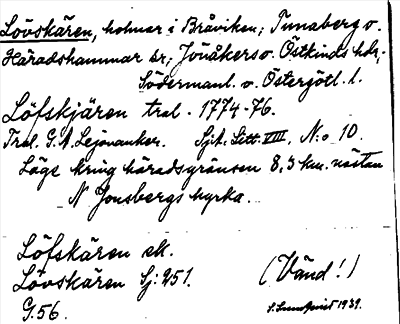 Lövskären, holmar i Bråviken; Tunaberg o.
Häradshammar sr; Jönåkers o. Östkinds hdr;
Södermanl. o. Östergötl. l.
Löfskjären tral. 1774-76.
Tral. G. A. Lejonanker. Sjit. Litt. VIII, N:o 10.
Låge kring häradsgränsen 8,3 km. nästan
N Jonsbergs kyrka.
Löfskären ek.
Lövskären Sj: 251.
(Vänd!)
G.56.
S. Sundqvist 1939.